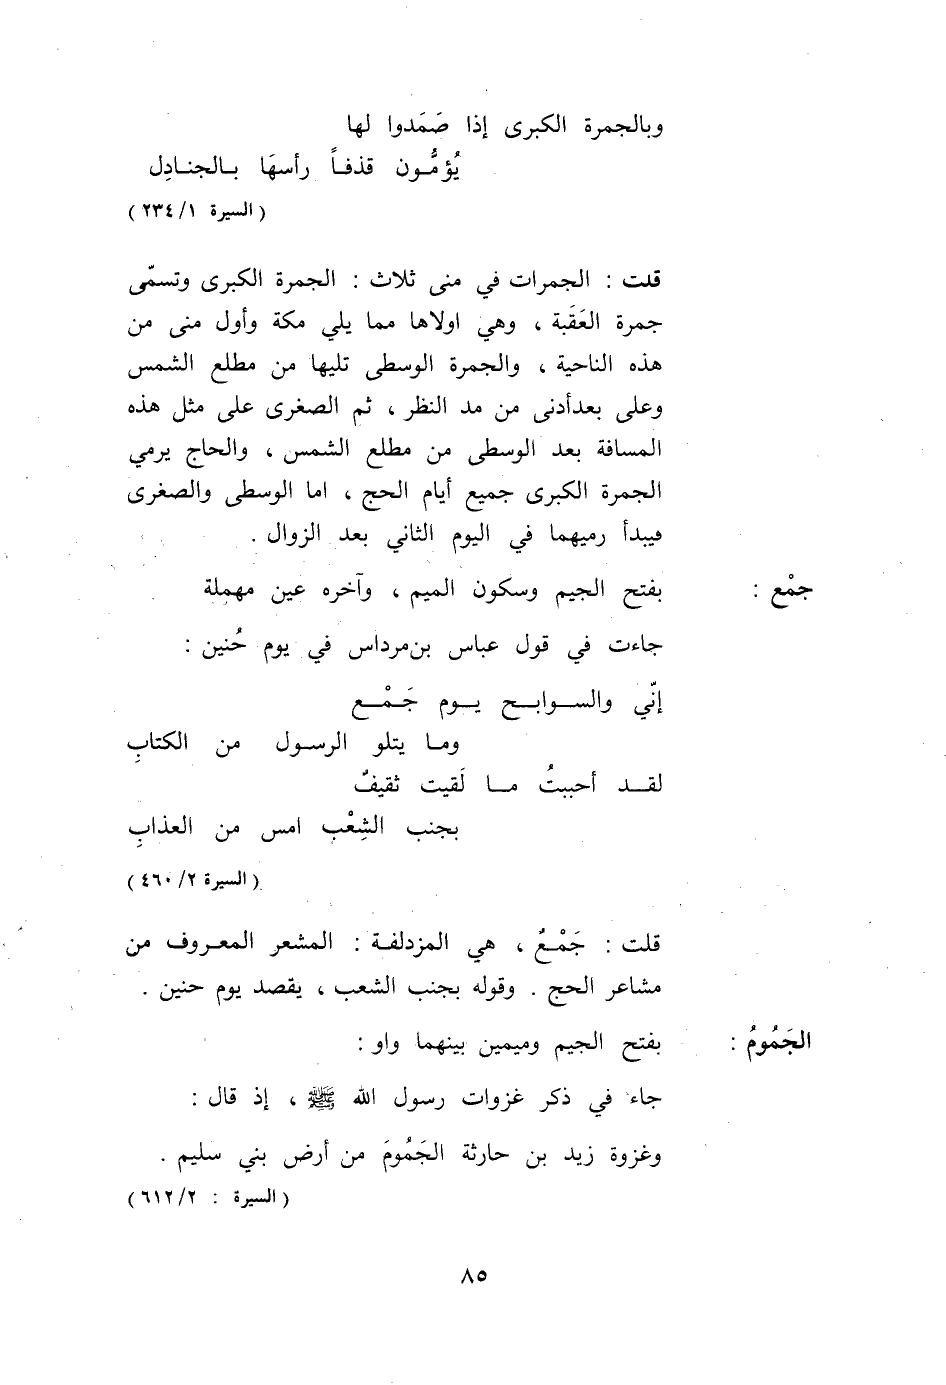 وبالجمرة الكبرى إذا صَمَدوا لها
يُؤمُّـون قذفـاً رأسهَا بـالجنـادِل
( السيرة ٢٣٤/١ )
قلت : الجمرات في منى ثلاث : الجمرة الكبرى وتسمّى
جمرة العَقَبة ، وهي اولاها مما يلي مكة وأول منى من
هذه الناحية ، والجمرة الوسطى تليها من مطلع الشمس
وعلى بعدأدنى من مد النظر ، ثم الصغرى على مثل هذه
المسافة بعد الوسطى من مطلع الشمس ، والحاج يرمي
الجمرة الكبرى جميع أيام الحج ، اما الوسطى والصغرى
فيبدأ رميهما في اليوم الثاني بعد الزوال .
جمْع : بفتح الجيم وسكون الميم ، وآخره عين مهملة
جاءت في قول عباس بن مرداس في يوم حُنين :
إنّي والســوابــح يــوم جَــمْــع
ومـا يتلو الرسـول من الكتابِ
لقــد أحببتُ مــا لَقيت ثقيفٌ
بجنب الشِعْب امس من العذابِ
( السيرة ٤٦٠/٢ )
قلت : جَمْعُ ، هي المزدلفـة : المشعر المعـروف من
مشاعر الحج . وقوله بجنب الشعب ، يقصد يوم حنين .
الجَمُومُ : بفتح الجيم وميمين بينهما واو :
جاء في ذكر غزوات رسول الله ﷺ ، إذ قال :
وغزوة زيد بن حارثة الجَمُومَ من أرض بني سليم .
( السيرة : ٦١٢/٢ )
٨٥